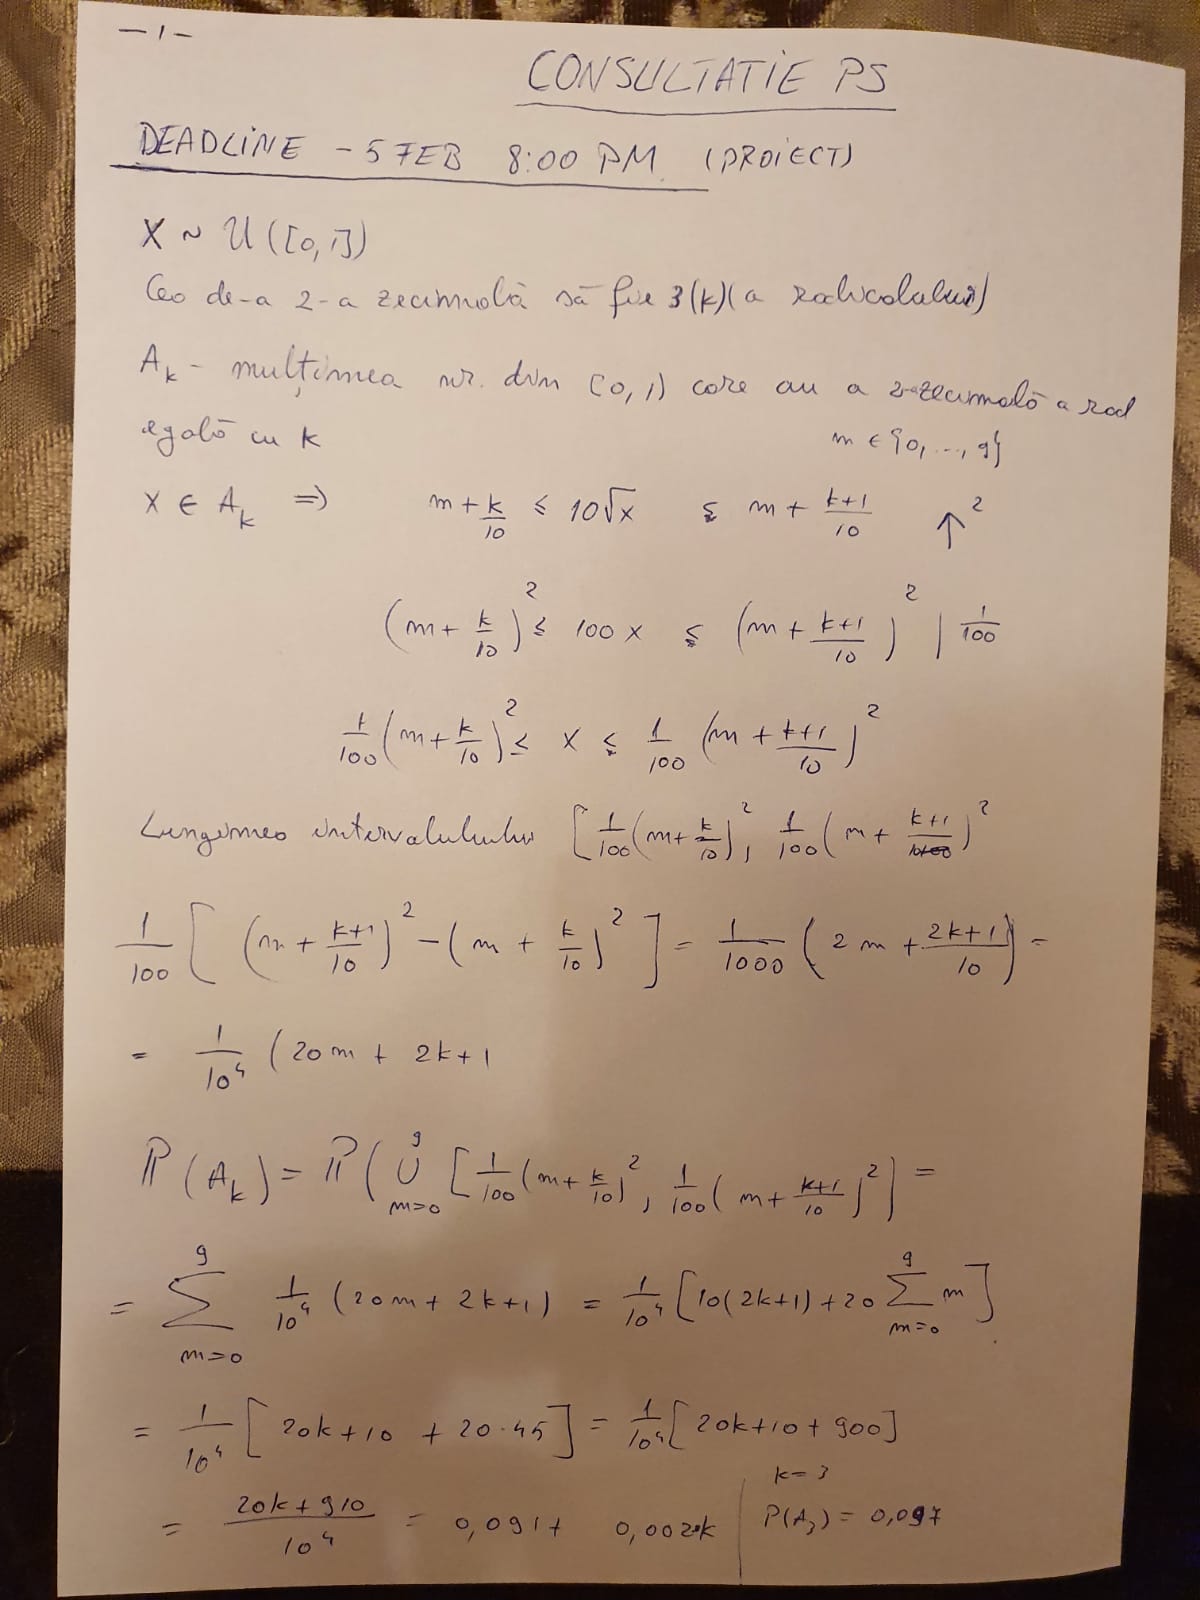 -1-
CONSULTATIE PS
DEADLINE - 5 FEB 8:00 PM (PROIECT)
X ~ U([0,1])
Cea de-a 2-a zecimală să fie 3(k)(a radicalului)
A_k - mulțimea nr. din (0,1) care au a 2-zecimală a rad
egală cu k
m ∈ {0, ..., 9}
x ∈ A_k ⇒ m + k/10 ≤ 10√x ≤ m + (k+1)/10 ↑²
(m + k/10)² ≤ 100x ≤ (m + (k+1)/10)² | 1/100
1/100 (m + k/10)² ≤ x ≤ 1/100 (m + (k+1)/10)²
Lungimea intervalului [1/100 (m + k/10)², 1/100 (m + (k+1)/10)²
1/100 [(m + (k+1)/10)² - (m + k/10)²] = 1/1000 (2m + (2k+1)/10) =
= 1/10⁴ (20m + 2k+1
ℙ(A_k) = ℙ(∪_{m=0}^{9} [1/100 (m + k/10)², 1/100 (m + (k+1)/10)²] =
= Σ_{m=0}^{9} 1/10⁴ (20m + 2k+1) = 1/10⁴ [10(2k+1) + 20 Σ_{m=0}^{9} m]
= 1/10⁴ [20k+10 + 20·45] = 1/10⁴ [20k+10+900]
= (20k+910)/10⁴ = 0,091+ 0,002k
k=3
P(A₃) = 0,097